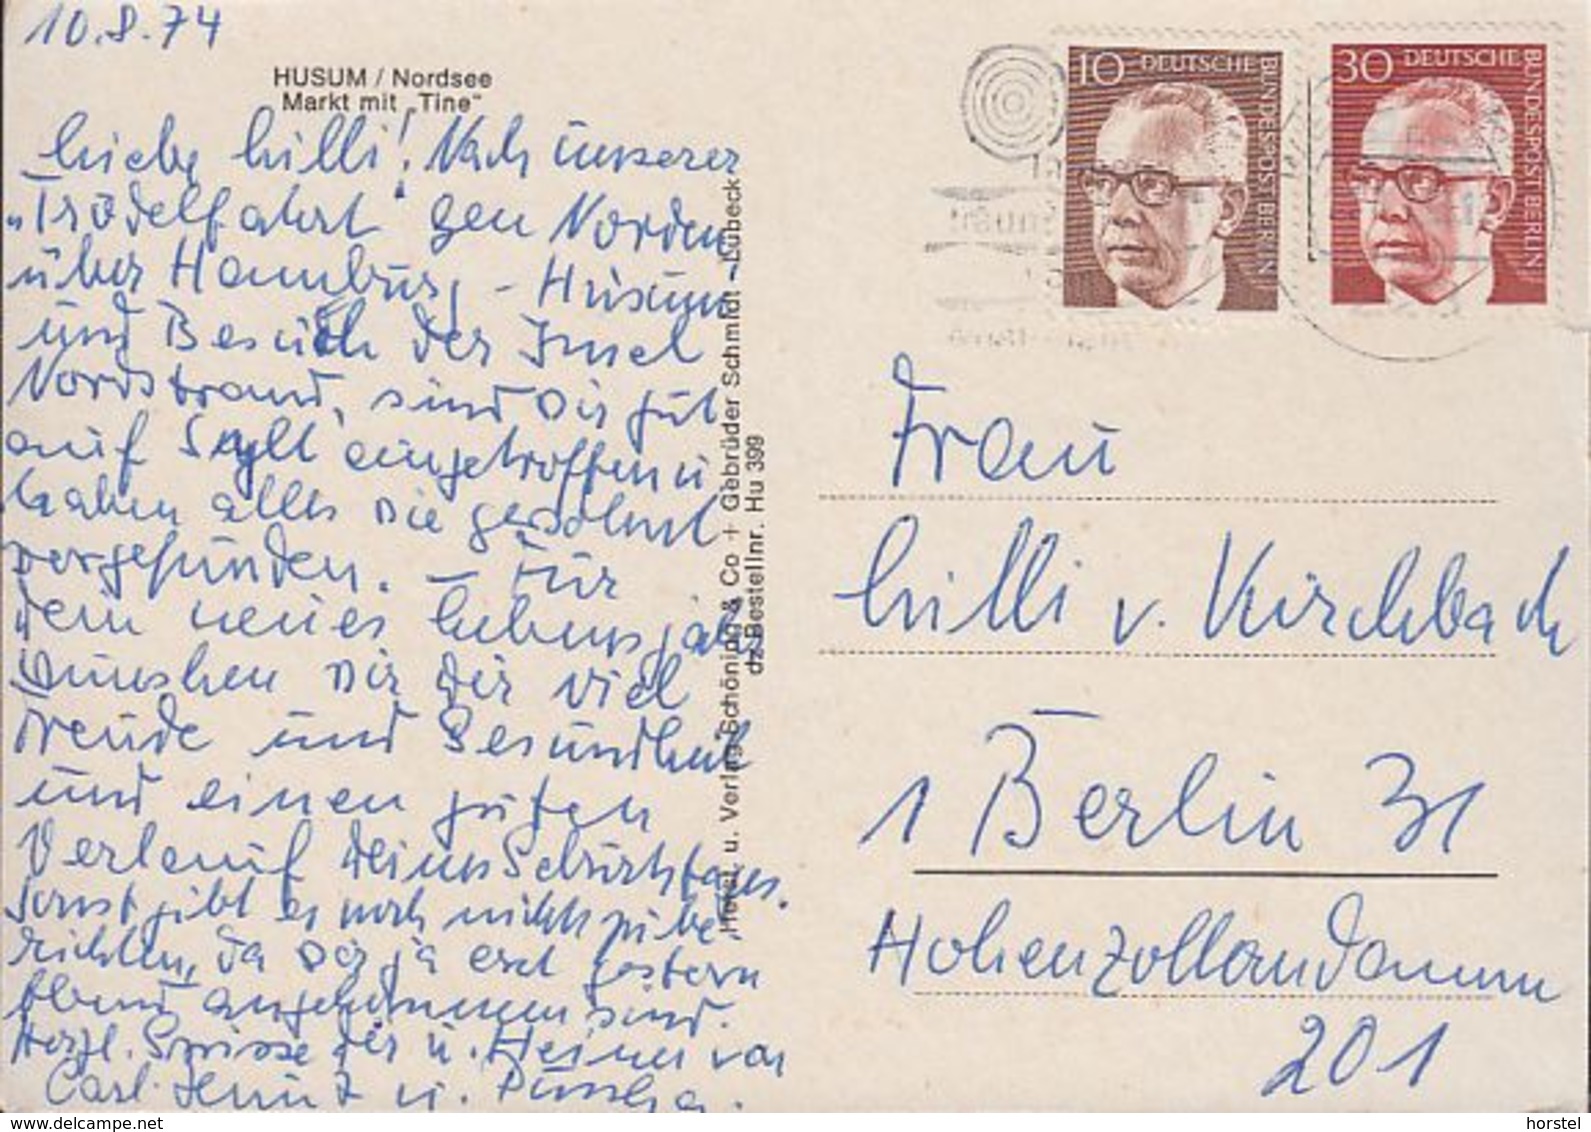 10.8.74
HUSUM / Nordsee
Markt mit „Tine"
Liebe Lilli! Nach unserer
„Trödelfahrt" gen Norden
über Hamburg - Husum
und Besuch der Insel
Nordstrand, sind wir gut
auf Sylt eingetroffen u
haben alles wie gewohnt
vorgefunden. — Für
Dein neues Lebensjahr
wünschen wir Dir viel
Freude und Gesundheit
und einen guten
Verlauf Deines Geburtstages.
Sonst gibt es noch nichts zu be-
richten, da wir ja erst gestern
Abend angekommen sind.
Herzl. Grüsse Dir u. Heiner von
Carl-Heinz u.
Verlag Schöning & Co + Gebrüder Schmidt - Lübeck
Bestellnr. Hu 399
10 DEUTSCHE BUNDESPOST BERLIN
30 DEUTSCHE BUNDESPOST BERLIN
Frau
Lilli v. Kirchbach
1 Berlin 31
Hohenzollerndamm
201
www.delcampe.net
horstel